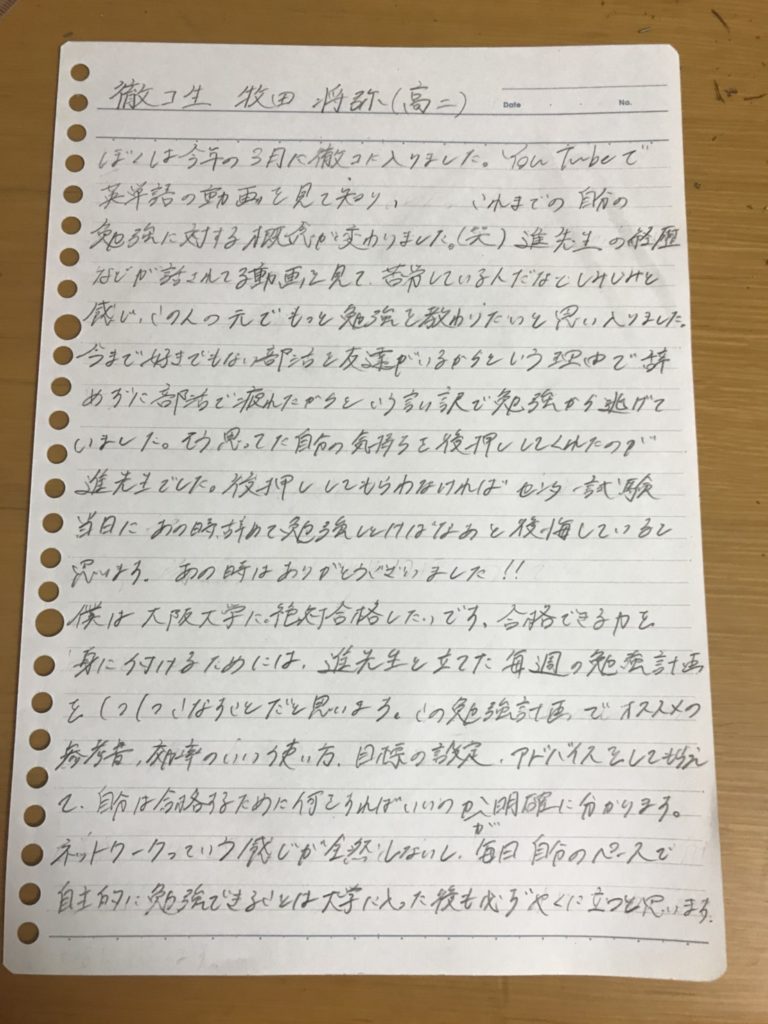 徹コ生 牧田 将弥(高二)
Date No.
ぼくは今年の3月に徹コに入りました。You Tubeで
英単語の動画を見て知り、 これまでの自分の
勉強に対する概念が変わりました。(笑) 進先生の経歴
などが話されてる動画を見て、苦労している人だなとしみじみと
感じ、この人の元でもっと勉強を教わりたいと思い入りました。
今まで好きでもない部活を友達がいるからという理由で辞
めずに部活で疲れたからという言い訳で勉強から逃げて
いました。そう思ってた自分の気持ちを後押ししてくれたのが
進先生でした。後押ししてもらわなければセンター試験
当日にあの時辞めて勉強しとけばなあと後悔していると
思います。あの時はありがとうございました!!
僕は大阪大学に絶対合格したいです。合格できる力を
身に付けるためには、進先生と立てた毎週の勉強計画
を しつしつこなすことだと思います。この勉強計画でオススメの
参考書、効率のいい使い方、目標の設定、アドバイスをしてもらえ
て、自分は合格するために何をすればいいのかが明確に分かります。
ネットワークっていう感じが全然しないし、毎日自分のペースで
自主的に勉強できることは大学に入った後も必ずやくに立つと思います。